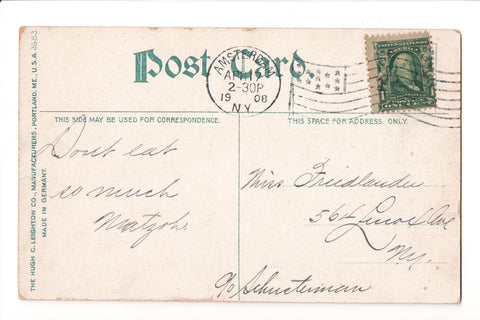 Post Card.
AMSTERDAM
APR
2-30P
1908
N.Y.
THIS SIDE MAY BE USED FOR CORRESPONDENCE.
THIS SPACE FOR ADDRESS ONLY.
Don't eat
so much
Matzohs
Miss Friedlander
564 Lenox Ave
Ny.
c/o Schusterman
THE HUGH C. LEIGHTON CO., MANUFACTURERS, PORTLAND, ME., U.S.A.
MADE IN GERMANY.